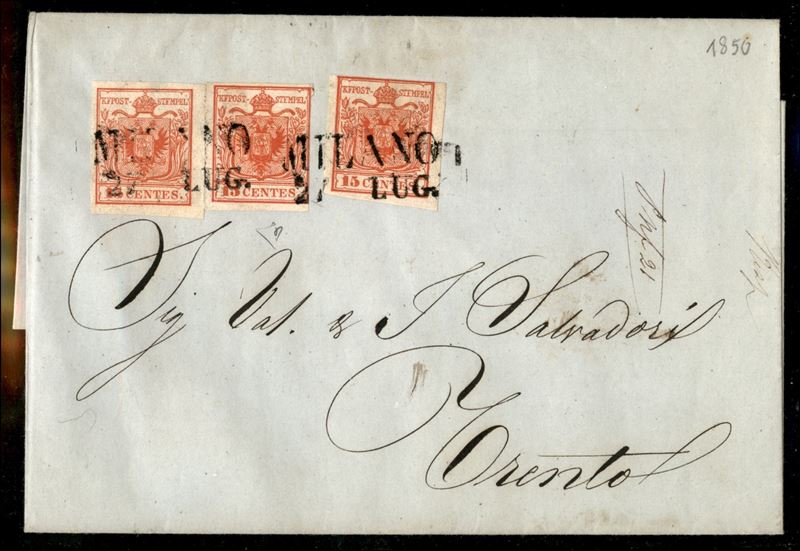 1850
KKPOST-STEMPEL KKPOST-STEMPEL KKPOST-STEMPEL
MILANO MILANO
27 LUG. 27 LUG.
15 CENTES. 15 CENTES. 15 CENTES.
Sig Val. & I Salvadori
Trento